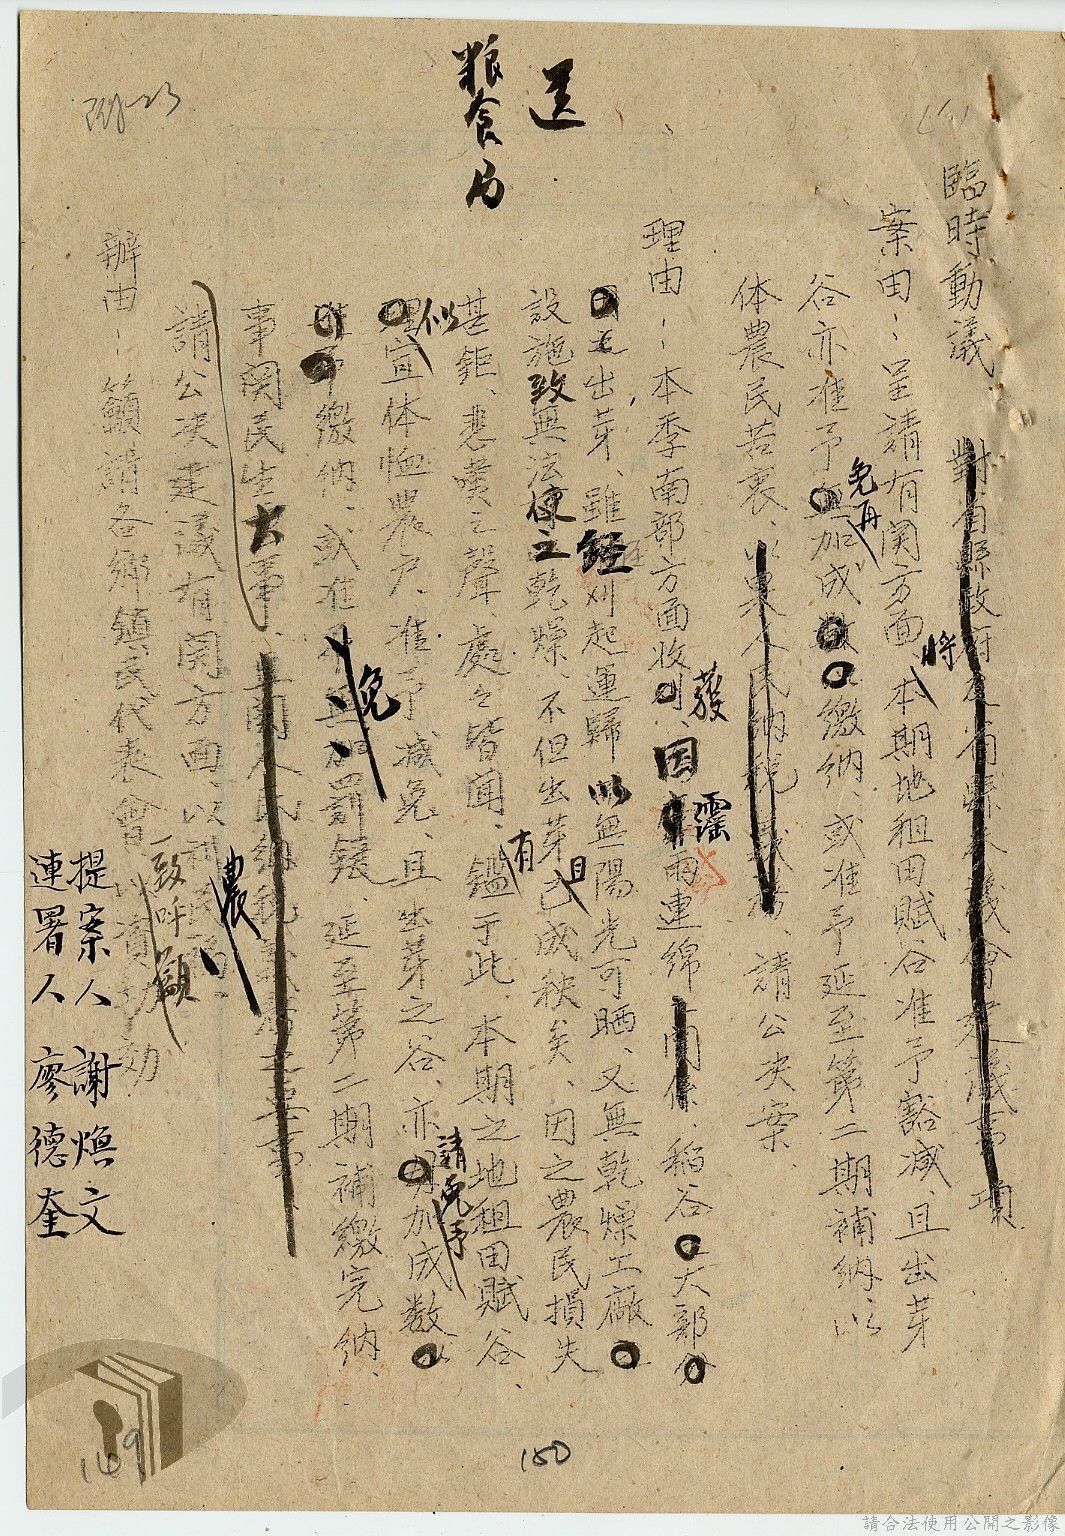 送
粮食局
臨時動議、對省縣政府及省縣參議會建議事項
案由：呈請有関方面將本期地租田賦谷准予豁減、且出芽
谷亦准予免再加成繳納、或准予延至第二期補納、以
体農民苦衷、以畢人民納稅義務、請公決案、
理由：本季南部方面收穫、因霪雨連綿、稻谷大部分
出芽、雖經刈起運歸以無陽光可晒、又無乾燥工廠
設施致無法使之乾燥、不但出芽且有已成秧矣、因之農民損失
甚鉅、悲嘆之聲、處々皆聞、鑑于此、本期之地租田賦谷、
似宜体恤農戶、准予減免、且出芽之谷、亦請免予加成数
繳納、或准免加罰鍰、延至第二期補繳完納、
事関民生大事、
請公決建議有関方面、以利農民
辦由：籲請各鄉鎮民代表會一致呼籲以資功効
提案人 謝煥文
連署人 廖德奎
150
149
請合法使用公開之影像